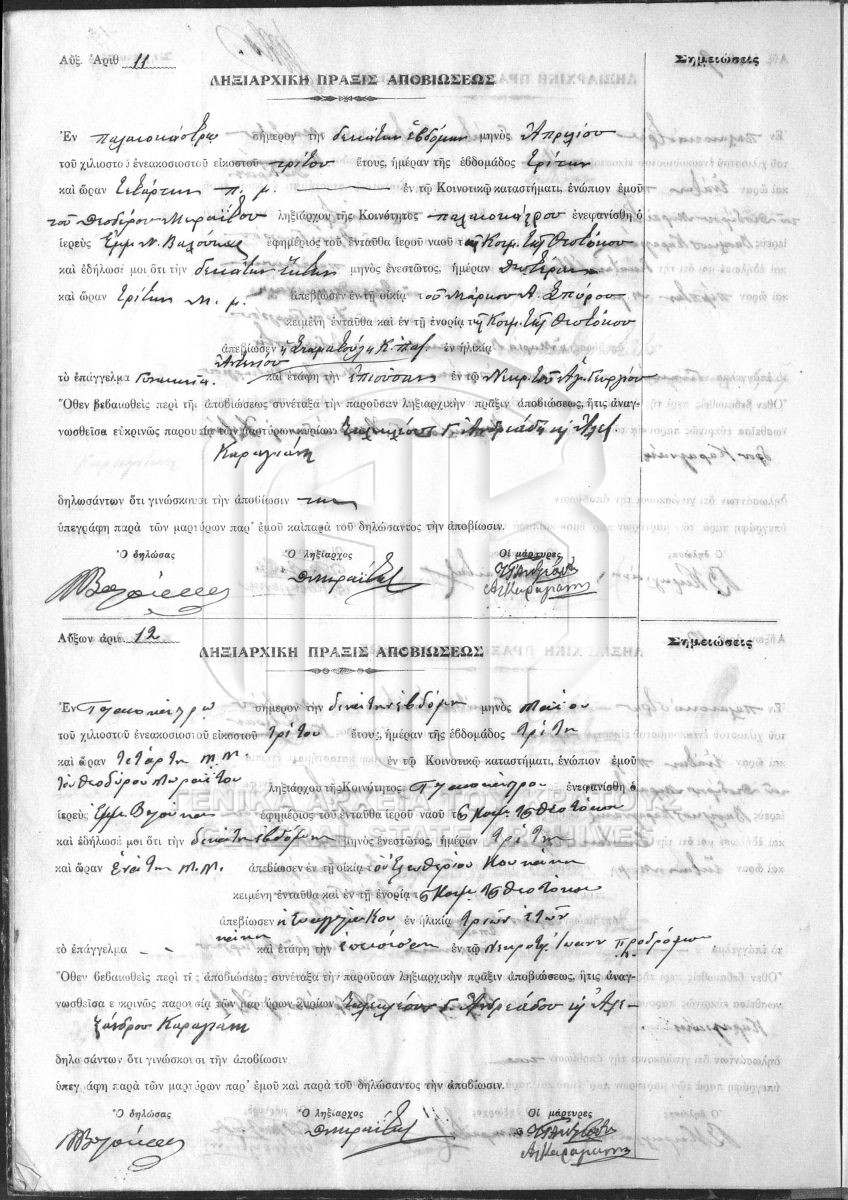 Αὔξ. Ἀριθ 11
ΛΗΞΙΑΡΧΙΚΗ ΠΡΑΞΙΣ ΑΠΟΒΙΩΣΕΩΣ
Σημειώσεις
Ἐν Παλαιοκάστρῳ σήμερον τὴν δεκάτην ἑβδόμην μηνὸς Ἀπριλίου
τοῦ χιλιοστοῦ ἐνεακοσιοστοῦ εἰκοστοῦ τρίτου ἔτους, ἡμέραν τῆς ἑβδομάδος Τρίτην
καὶ ὥραν τετάρτην π. μ. ἐν τῷ Κοινοτικῷ καταστήματι, ἐνώπιον ἐμοῦ
τοῦ Θεοδώρου Μωραΐτου ληξιάρχου τῆς Κοινότητος Παλαιοκάστρου ἐνεφανίσθη ὁ
ἱερεὺς Ἐμμ. Ν. ἐφημέριος τοῦ ἐνταῦθα ἱεροῦ ναοῦ τῆς Κοιμ. τῆς Θεοτόκου
καὶ ἐδήλωσέ μοι ὅτι τὴν δεκάτην ἕκτην μηνὸς ἐνεστῶτος, ἡμέραν Δευτέραν
καὶ ὥραν τρίτην μ. μ. ἀπεβίωσεν ἐν τῇ οἰκίᾳ τοῦ Μάρκου Α. Σπύρου
κειμένῃ ἐνταῦθα καὶ ἐν τῇ ἐνορίᾳ τῆς Κοιμ. τῆς Θεοτόκου
ἀπεβίωσεν ἡ Κ. ἐν ἡλικίᾳ
τὸ ἐπάγγελμα καὶ ἐτάφη τὴν ἐπιοῦσαν ἐν τῷ Νεκρ. τοῦ Ἁγ. Γεωργίου
Ὅθεν βεβαιωθεὶς περὶ τῆς ἀποβιώσεως συνέταξα τὴν παροῦσαν ληξιαρχικὴν πρᾶξιν ἀποβιώσεως, ἥτις ἀναγ-
νωσθεῖσα εὐκρινῶς παρουσίᾳ τῶν μαρτύρων κυρίων Γ. Ἀνδρεάδη κ Ἀλεξ
Καραγιάνη
δηλωσάντων ὅτι γινώσκουσι τὴν ἀποβίωσιν
ὑπεγράφη παρὰ τῶν μαρτύρων παρ' ἐμοῦ καὶ παρὰ τοῦ δηλώσαντος τὴν ἀποβίωσιν.
Ὁ δηλώσας Ὁ ληξίαρχος Οἱ μάρτυρες
Θ Μωραΐτης
Αλ Καραγιάνης
Αὔξων ἀριθ. 12
ΛΗΞΙΑΡΧΙΚΗ ΠΡΑΞΙΣ ΑΠΟΒΙΩΣΕΩΣ
Σημειώσεις
Ἐν Παλαιοκάστρῳ σήμερον τὴν δεκάτην ἑβδόμην μηνὸς Μαΐου
τοῦ χιλιοστοῦ ἐνεακοσιοστοῦ εἰκοστοῦ τρίτου ἔτους, ἡμέραν τῆς ἑβδομάδος τρίτη
καὶ ὥραν τετάρτη μ.μ. ἐν τῷ Κοινοτικῷ καταστήματι, ἐνώπιον ἐμοῦ
τοῦ Θεοδώρου Μωραΐτου ληξιάρχου τῆς Κοινότητος Παλαιοκάστρου ἐνεφανίσθη ὁ
ἱερεὺς Ἐμμ. ἐφημέριος τοῦ ἐνταῦθα ἱεροῦ ναοῦ τῆς Κοιμ. τῆς Θεοτόκου
καὶ ἐδήλωσέ μοι ὅτι τὴν δεκάτην ἑβδόμην μηνὸς ἐνεστῶτος, ἡμέραν τρίτη
καὶ ὥραν ἐνάτην π.μ. ἀπεβίωσεν ἐν τῇ οἰκίᾳ τοῦ Ἐλευθερίου Κουκάκη
κειμένῃ ἐνταῦθα καὶ ἐν τῇ ἐνορίᾳ τῆς Κοιμ. τῆς Θεοτόκου
ἀπεβίωσεν ἡ Εὐαγγελία Κου ἐν ἡλικίᾳ τριῶν ἐτῶν
κάκη
τὸ ἐπάγγελμα - - καὶ ἐτάφη τὴν ἐπιοῦσαν ἐν τῷ Νεκροτ. Ἰωάνν Προδρόμου
Ὅθεν βεβαιωθεὶς περὶ τῆς ἀποβιώσεως συνέταξα τὴν παροῦσαν ληξιαρχικὴν πρᾶξιν ἀποβιώσεως, ἥτις ἀναγ-
νωσθεῖσα εὐκρινῶς παρουσίᾳ τῶν μαρτύρων κυρίων Γ. Ἀνδρεάδου κ Ἀλε-
ξάνδρου Καραγιάνη
δηλωσάντων ὅτι γινώσκουσι τὴν ἀποβίωσιν
ὑπεγράφη παρὰ τῶν μαρτύρων παρ' ἐμοῦ καὶ παρὰ τοῦ δηλώσαντος τὴν ἀποβίωσιν.
Ὁ δηλώσας Ὁ ληξίαρχος Οἱ μάρτυρες
Θ Μωραΐτης
Αλ Καραγιάνης
ΓΕΝΙΚΑ ΑΡΧΕΙΑ ΤΟΥ ΚΡΑΤΟΥΣ
GENERAL STATE ARCHIVES